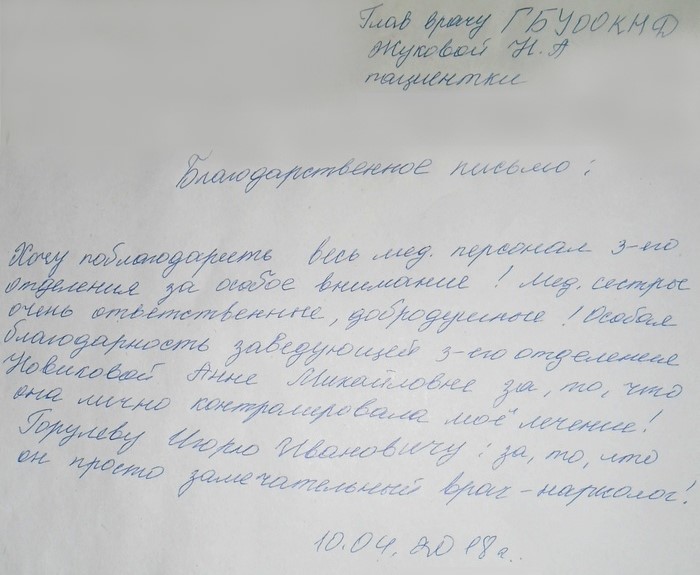 Глав врачу ГБУРОКНД
Жуковой Н.А
пациентки
Благодарственное письмо:
Хочу поблагодарсть весь мед. персонал 3-его
отделения за особое внимание! Мед. сестры
очень ответственные, добродушные! Особая
благодарность заведующей 3-его отделения
Новиковой Анне Михайловне за, то, что
она лично контролировала моё лечение!
Горулеву Игорю Ивановичу: за, то, что
он просто замечательный врач-нарколог!
10.04.2018г.